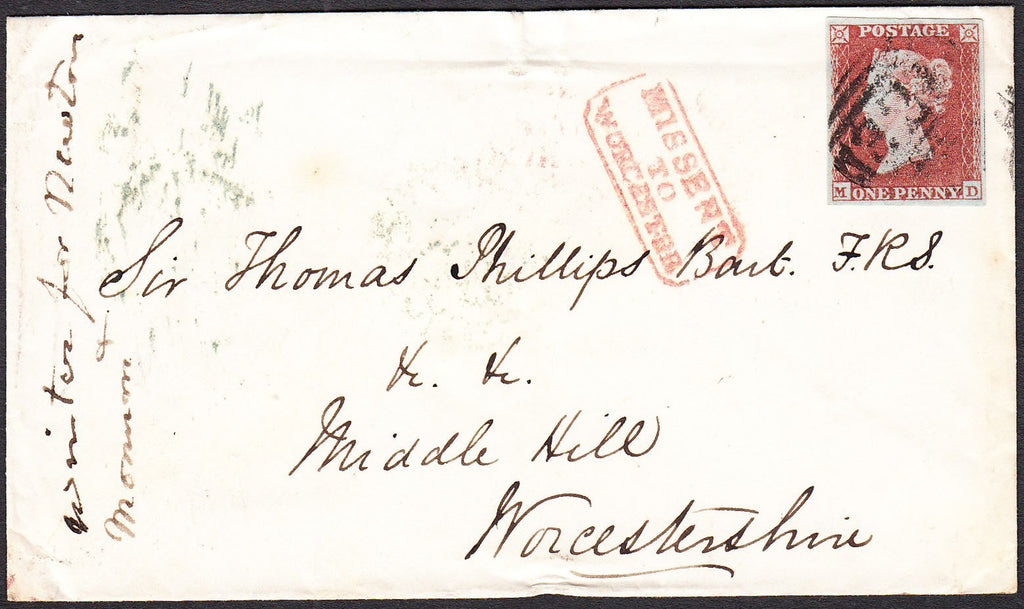 POSTAGE
M ONE PENNY D
MISSENT
TO
WORCESTER
Sir Thomas Phillips Bart. F.R.S.
&c. &c.
Middle Hill
Worcestershire
for
&